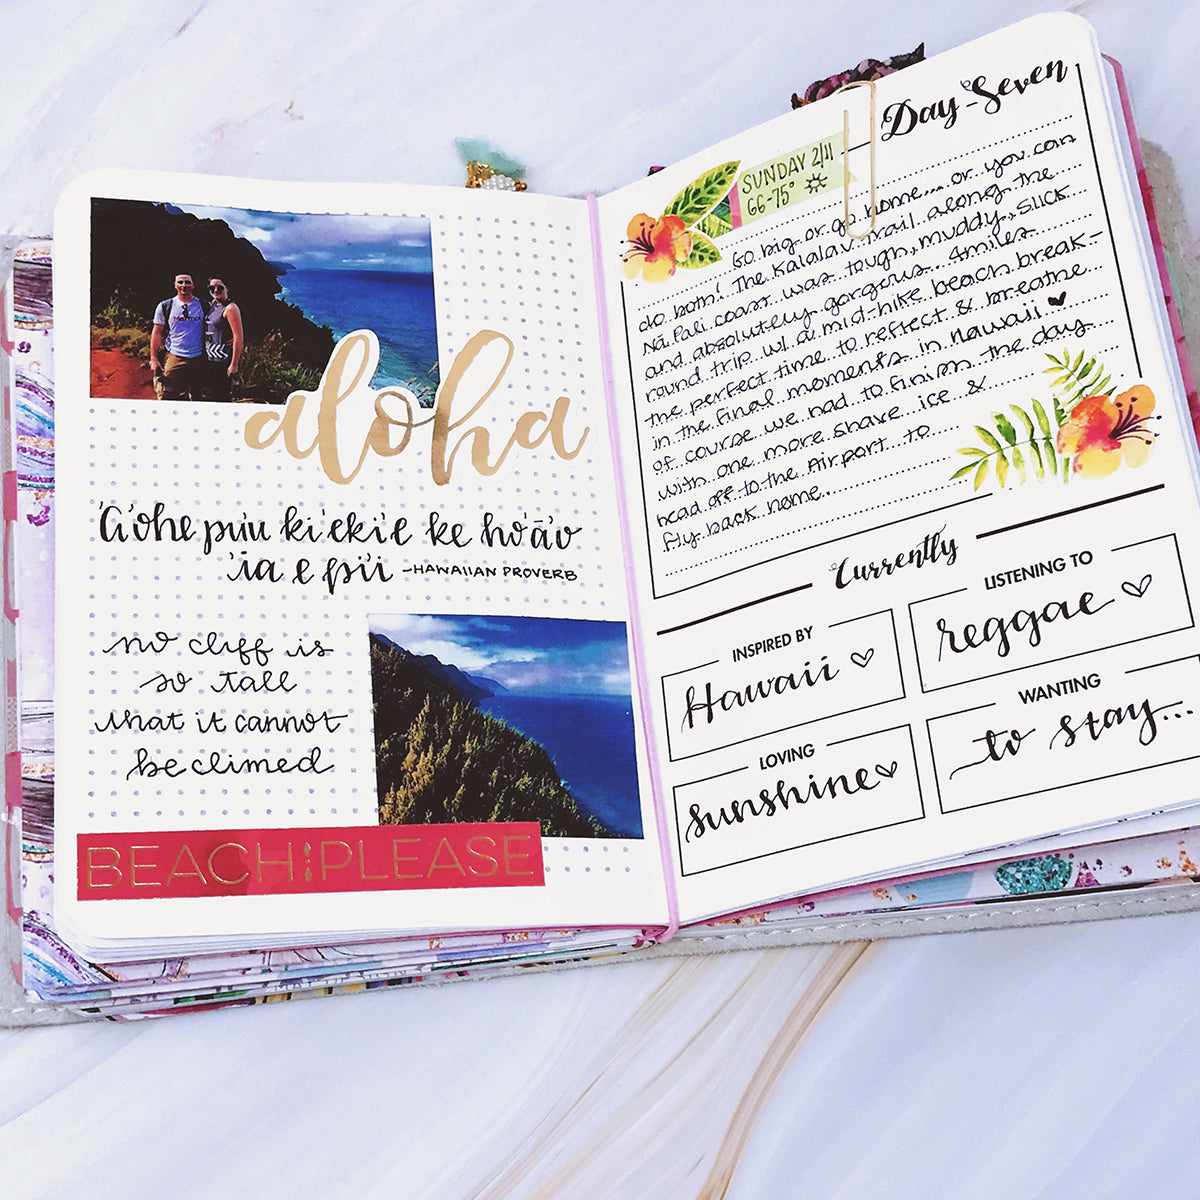 aloha
'a'ohe pu'u ki'eki'e ke ho'ā'o
'ia e pi'i -HAWAIIAN PROVERB
no cliff is
so tall
that it cannot
be climed
BEACH PLEASE
Day Seven
SUNDAY 2/11
66-75°
Go big or go home... or you can
do both! The Kalalav Trail along the
Na Pali coast was tough, muddy, slick
and absolutely gorgous. 4 miles
round trip w/ a mid-hike beach break-
the perfect time to reflect & breathe
in the final moments in hawaii
of course we had to finish the day
with one more shave ice &
head off to the Airport to
fly back home.
Currently
INSPIRED BY
Hawaii
LISTENING TO
reggae
LOVING
sunshine
WANTING
to stay...